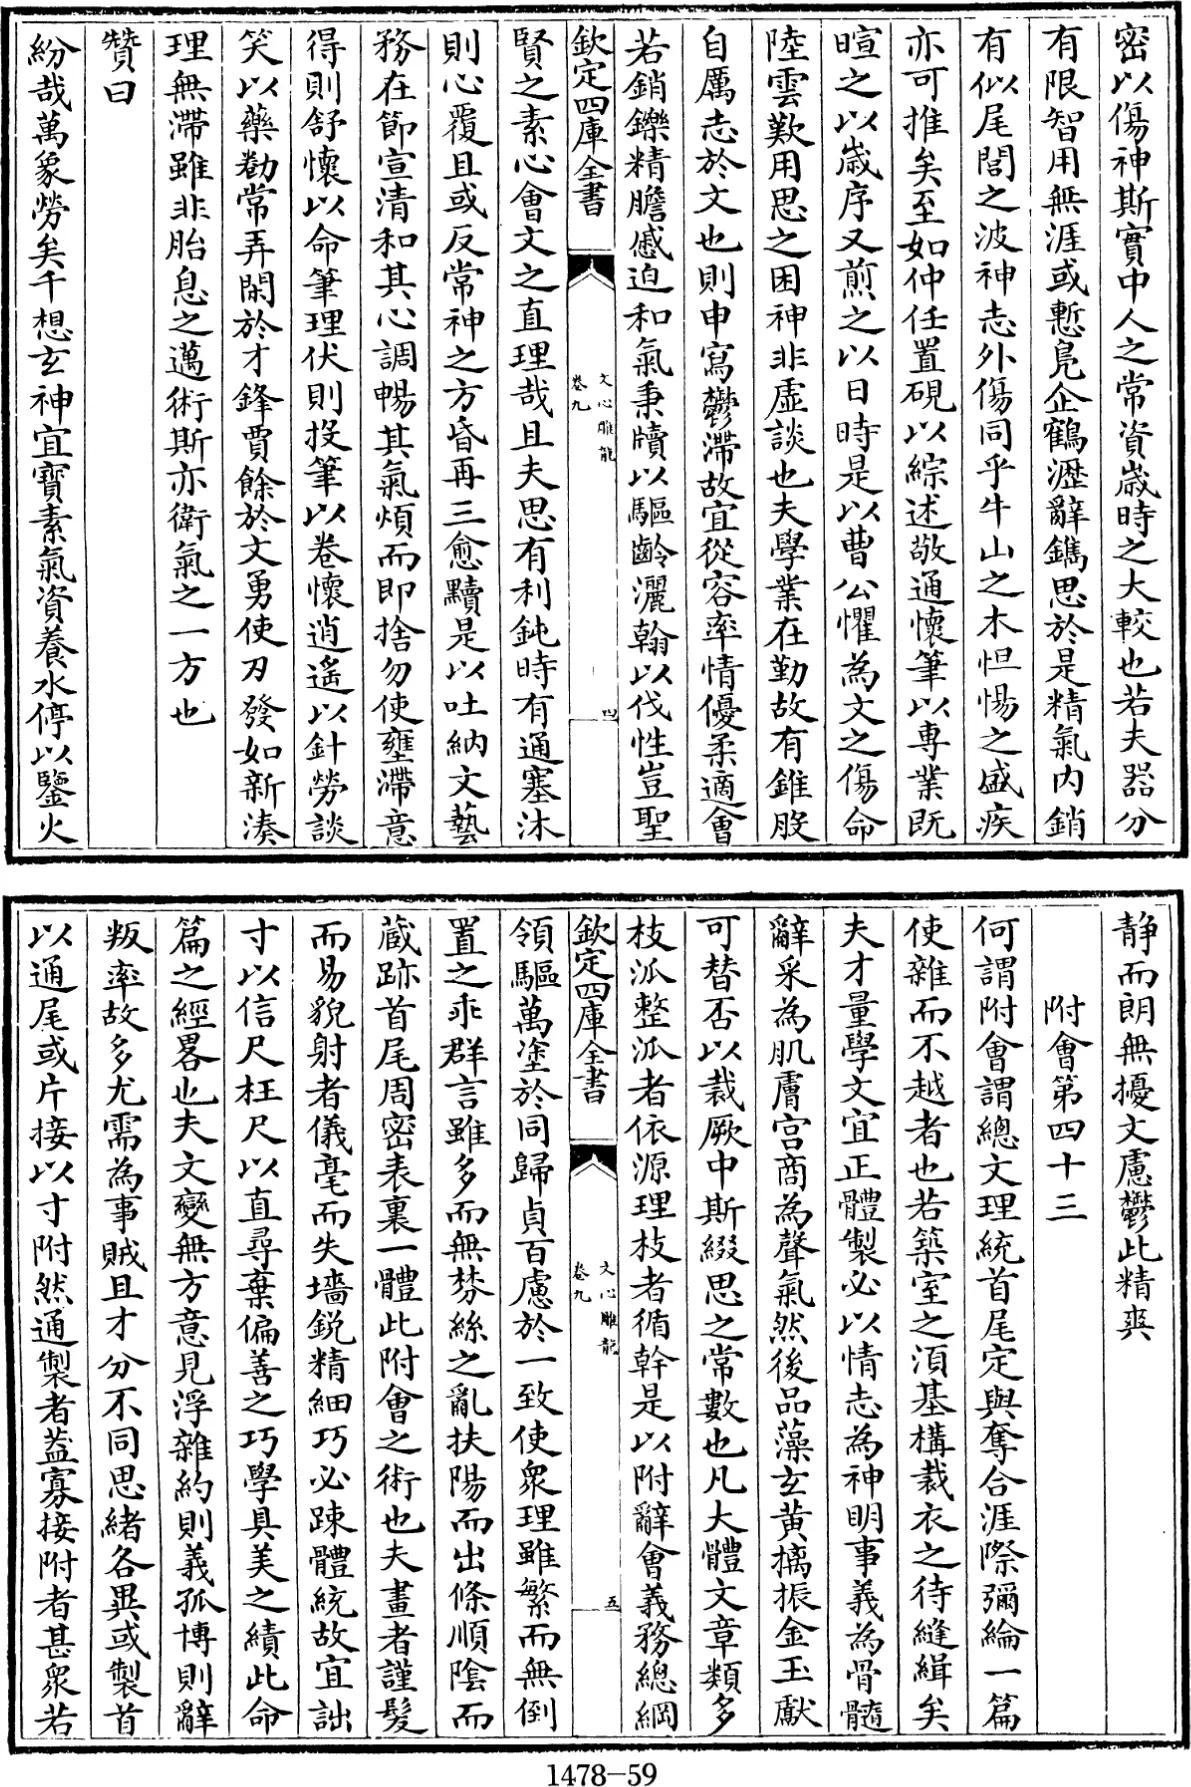 密以傷神斯實中人之常資歳時之大較也若夫器分
有限智用無涯或慙鳬企鶴瀝辭鐫思於是精氣内銷
有似尾閭之波神志外傷同乎牛山之木怛惕之盛疾
亦可推矣至如仲任置硯以綜述敬通懷筆以専業既
暄之以歳序又煎之以日時是以曹公懼為文之傷命
陸雲歎用思之困神非虛談也夫學業在勤故有錐股
自厲志於文也則申寫鬱滯故宜從容率情優柔適㑹
若銷鑠精膽蹙迫和氣秉牘以驅齡灑翰以伐性豈聖
欽定四庫全書
文心雕龍
卷九
四
賢之素心㑹文之直理哉且夫思有利鈍時有通塞沐
則心覆且或反常神之方昏再三愈黷是以吐納文藝
務在節宣清和其心調暢其氣煩而即捨勿使壅滯意
得則舒懷以命筆理伏則投筆以卷懷逍遙以針勞談
笑以藥勌常弄閑於才鋒賈餘於文勇使刃發如新湊
理無滯雖非胎息之邁術斯亦衛氣之一方也
贊曰
紛哉萬象勞矣千想玄神宜寳素氣資養水停以鑒火
靜而朗無擾文慮鬱此精爽
附㑹第四十三
何謂附㑹謂總文理統首尾定與奪合涯際彌綸一篇
使雜而不越者也若築室之湏基構裁衣之待縫緝矣
夫才量學文宜正體製必以情志為神明事義為骨髓
辭采為肌膚宮商為聲氣然後品藻玄黄摛振金玉獻
可替否以裁厥中斯綴思之常數也凡大體文章類多
枝派整派者依源理枝者循幹是以附辭㑹義務總綱
欽定四庫全書
文心雕龍
卷九
五
領驅萬塗於同歸貞百慮於一致使衆理雖繁而無倒
置之乖群言雖多而無棼絲之亂扶陽而出條順陰而
蔵跡首尾周密表裏一體此附㑹之術也夫畫者謹髮
而易貌射者儀毫而失墻鋭精細巧必踈體統故宜詘
寸以信尺枉尺以直尋棄偏善之巧學具美之績此命
篇之經畧也夫文變無方意見浮雜約則義孤博則辭
叛率故多尤需為事賊且才分不同思緒各異或製首
以通尾或片接以寸附然通製者葢寡接附者甚衆若
1478-59